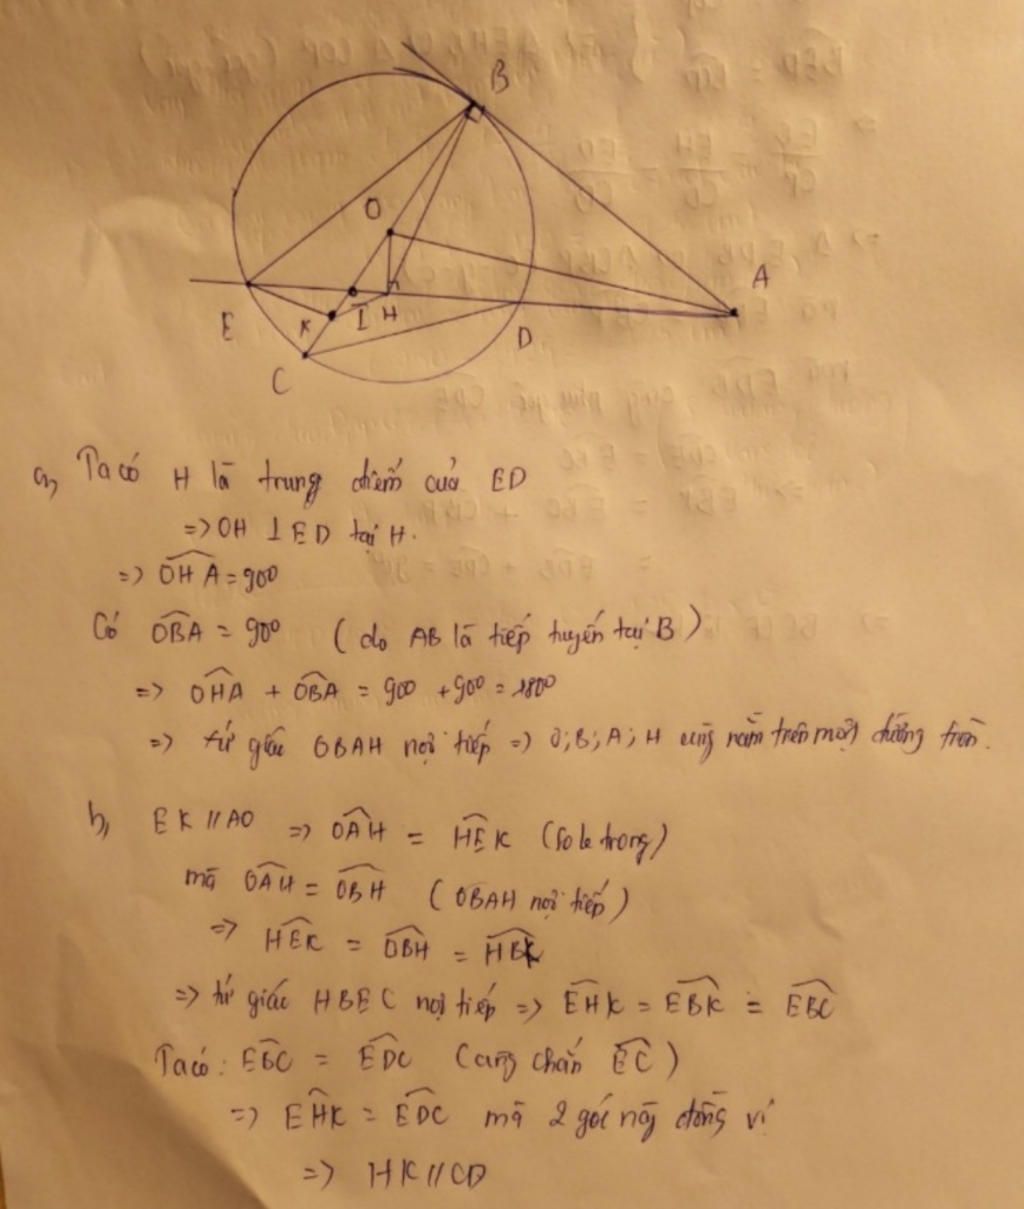 B
O
A
E
K
I
H
D
C
a, Ta có H là trung điểm của ED
=> OH ⊥ ED tại H.
=> \widehat{OHA} = 90⁰
Có \widehat{OBA} = 90⁰ (do AB là tiếp tuyến tại B)
=> \widehat{OHA} + \widehat{OBA} = 90⁰ + 90⁰ = 180⁰
=> tứ giác OBAH nội tiếp => O; B; A; H cùng nằm trên một đường tròn.
b, EK // AO => \widehat{OAH} = \widehat{HEK} (so le trong)
mà \widehat{OAH} = \widehat{OBH} (OBAH nội tiếp)
=> \widehat{HEK} = \widehat{OBH} = \widehat{HBK}
=> tứ giác HBEC nội tiếp => \widehat{EHK} = \widehat{EBK} = \widehat{EBC}
Ta có: \widehat{EBC} = \widehat{EDC} (cùng chắn \widehat{EC})
=> \widehat{EHK} = \widehat{EDC} mà 2 góc này đồng vị
=> HK // CD